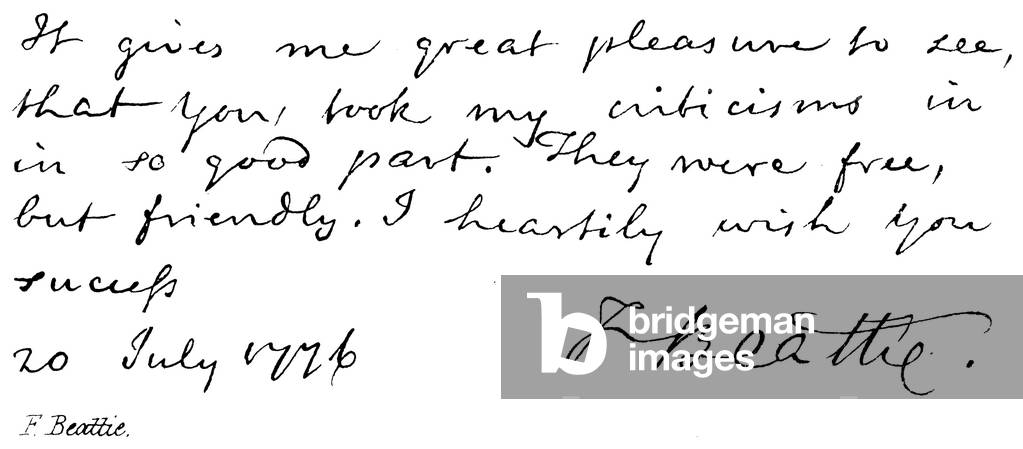 It gives me great pleasure to see,
that you, took my criticisms in
in so good part. They were free,
but friendly. I heartily wish you
success
20 July 1776
Beattie.
F. Beattie.
bridgeman
images